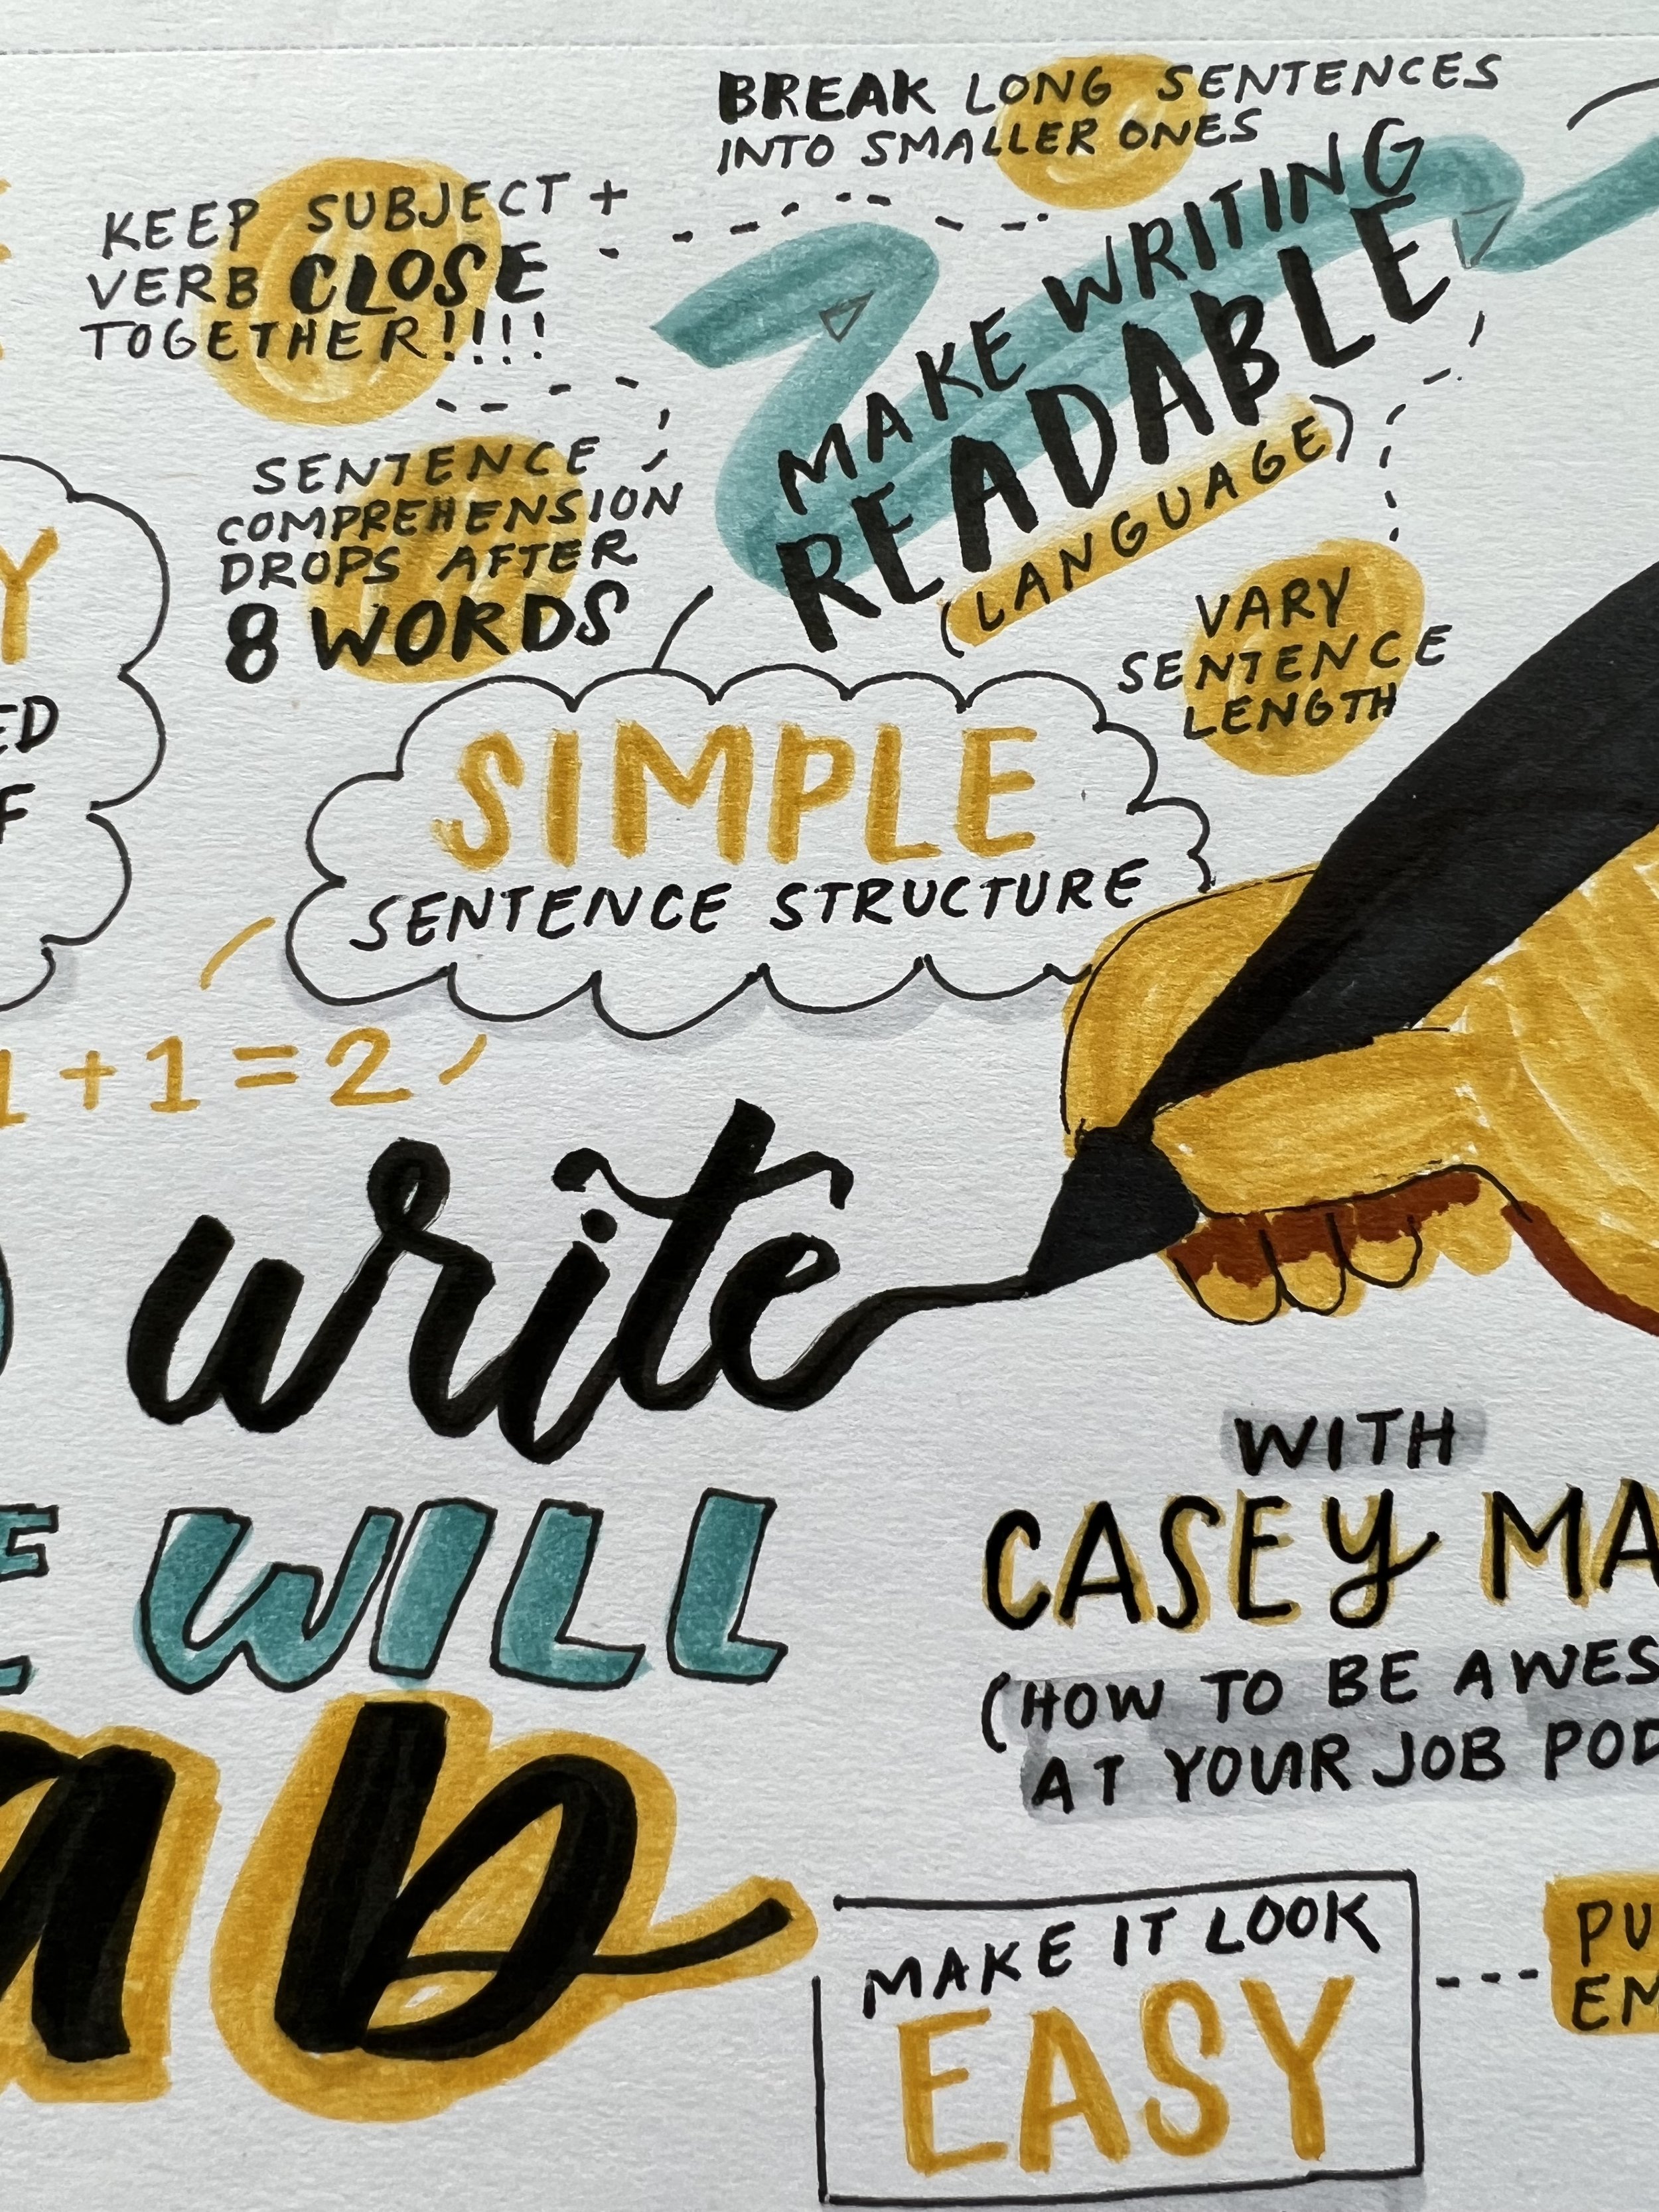 BREAK LONG SENTENCES
INTO SMALLER ONES
KEEP SUBJECT +
VERB CLOSE
TOGETHER!!!!
MAKE WRITING
READABLE
(LANGUAGE)
SENTENCE
COMPREHENSION
DROPS AFTER
8 WORDS
VARY
SENTENCE
LENGTH
SIMPLE
SENTENCE STRUCTURE
1+1=2
write
WILL
WITH
CASEY
(HOW TO BE
AT YOUR JOB
MAKE IT LOOK
EASY